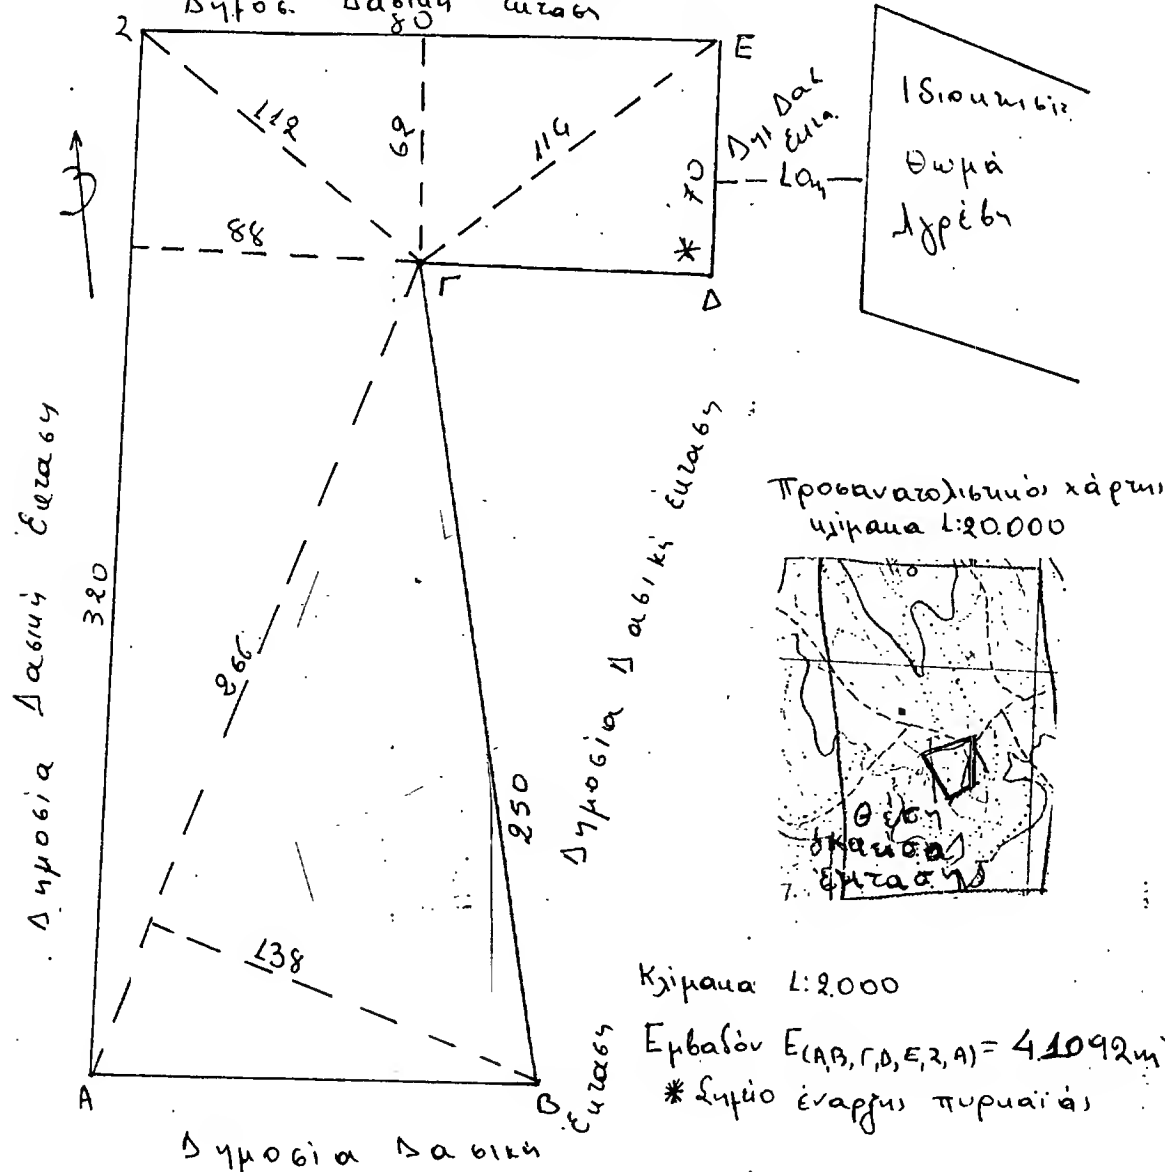 Δημοσ. Δασική έκταση
Ζ
80
Ε
112
69
114
70
Δημ Δασ
Εκτα.
10η
Ιδιοκτησία
Θωμά
Αγρέβη
88
Γ
*
Δ
Δημοσία Δασική Έκταση
320
266
250
Δημοσία Δασική έκταση
138
Α
Β
Δημοσία Δασική Έκταση
Προσανατολιστικός χάρτης
κλίμακα 1:20.000
Θέση
έκτασης
Κλίμακα 1:2.000
Εμβαδόν Ε(Α,Β,Γ,Δ,Ε,Ζ,Α)= 41092m²
* Σημείο έναρξης πυρκαϊάς